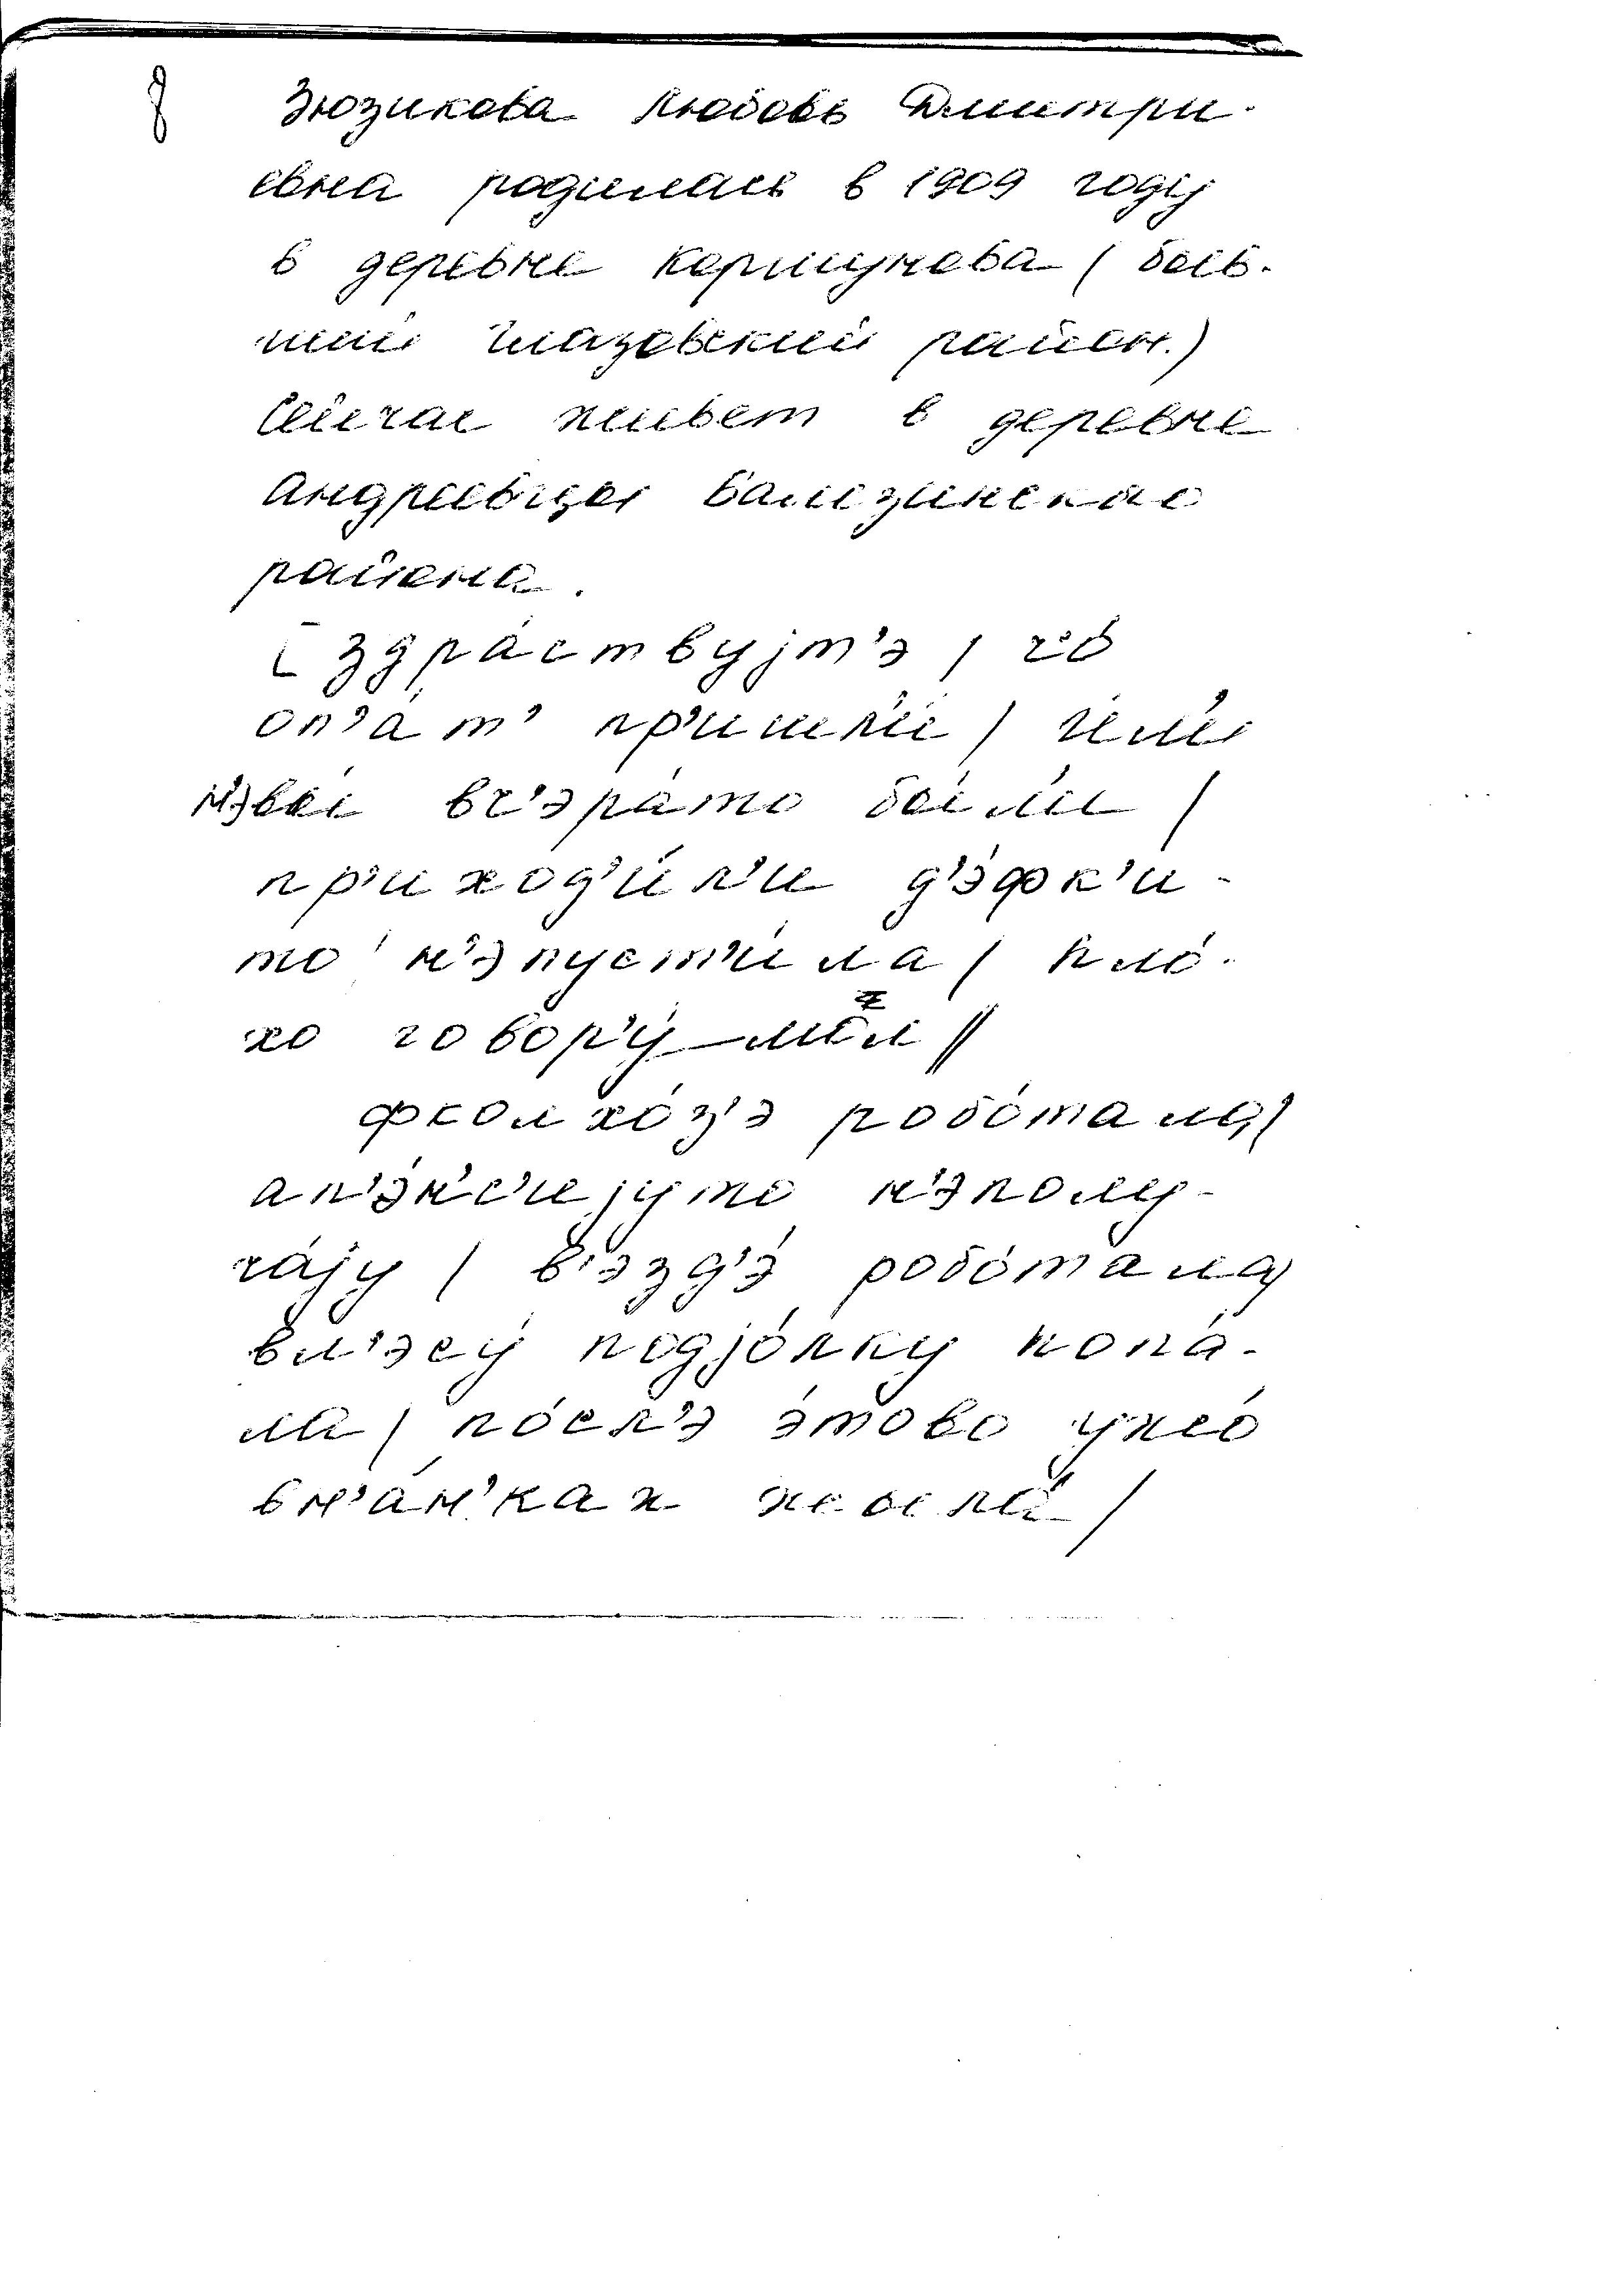 8 Зюзикова Любовь Дмитри-
евна родилась в 1909 году
в деревне Коршунова ( быв-
ший Глазовский район.)
Сейчас живет в деревне
Андреевцы Балезинского
района.
[ здра́ствујт'э / чо́
оп'а́т' пр'ишл'и́ / и́ли
н'эвы́ вч'эра́то бы́ли /
пр'иход'и́л'и д'э́фк'и-
то н'эпуст'и́ла / пло́-
хо говор'у́
фколхо́з'э робо́тала /
ап'э́нс'ијуто н'эполу-
ча́ју / в'эзд'э́ робо́тала /
вл'эсу́ подјо́лку копа́-
ла / по́сл'э э́тово ужо́
вн'а́н'ках жыла́ /